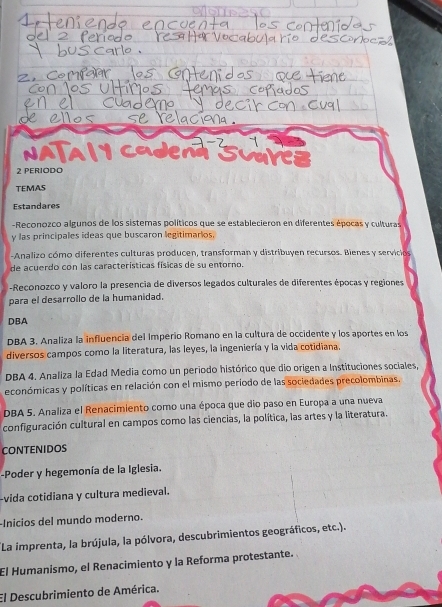 1. teniendo encuenta los contenidos
del 2 Periodo resaltar vocabulario desconocido
y buscarlo.
2. comparar los contenidos que tiene
con los ultimos temas copiados
en el cuaderno y decir con cual
de ellos se relaciona.
7-2
NATALY cadena Suarez
2 PERIODO
TEMAS
Estandares
-Reconozco algunos de los sistemas políticos que se establecieron en diferentes épocas y culturas
y las principales ideas que buscaron legitimarlos.
-Analizo cómo diferentes culturas producen, transforman y distribuyen recursos. Bienes y servicios
de acuerdo con las características físicas de su entorno.
-Reconozco y valoro la presencia de diversos legados culturales de diferentes épocas y regiones
para el desarrollo de la humanidad.
DBA
DBA 3. Analiza la influencia del Imperio Romano en la cultura de occidente y los aportes en los
diversos campos como la literatura, las leyes, la ingeniería y la vida cotidiana.
DBA 4. Analiza la Edad Media como un periodo histórico que dio origen a Instituciones sociales,
económicas y políticas en relación con el mismo período de las sociedades precolombinas.
DBA 5. Analiza el Renacimiento como una época que dio paso en Europa a una nueva
configuración cultural en campos como las ciencias, la política, las artes y la literatura.
CONTENIDOS
-Poder y hegemonía de la Iglesia.
-vida cotidiana y cultura medieval.
-Inicios del mundo moderno.
La imprenta, la brújula, la pólvora, descubrimientos geográficos, etc.).
El Humanismo, el Renacimiento y la Reforma protestante.
El Descubrimiento de América.